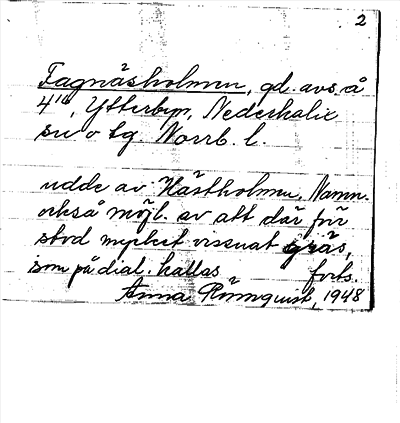 2
Fagnäsholmen, gd. avs. å
4¹⁰, Ytterbyn, Nederkalix
sn o tg. Norrb. l.
udde av Hästholmen. Namn.
också möjl. av att där förr
stod mycket vissnat gräs,
som på dial. kallas forts.
Anna Rönnquist, 1948